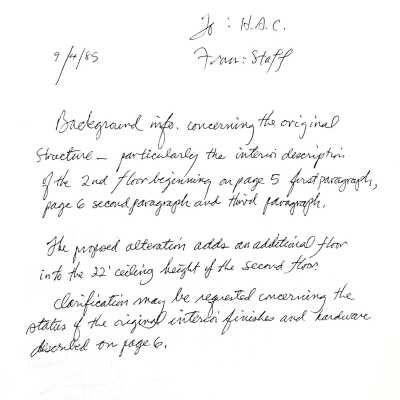 To: H.A.C.
9/4/85
From: Staff
Background info. concerning the original
structure — particularly the interior description
of the 2nd floor beginning on page 5 first paragraph,
page 6 second paragraph and third paragraph.
The proposed alteration adds an additional floor
into the 22' ceiling height of the second floor.
Clarification may be requested concerning the
status of the original interior finishes and hardware
described on page 6.